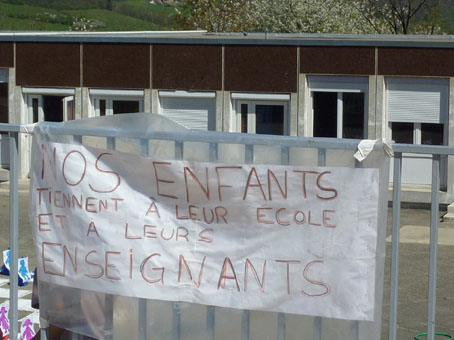 NOS ENFANTS
TIENNENT À LEUR ECOLE
ET À LEURS
ENSEiGNANTS